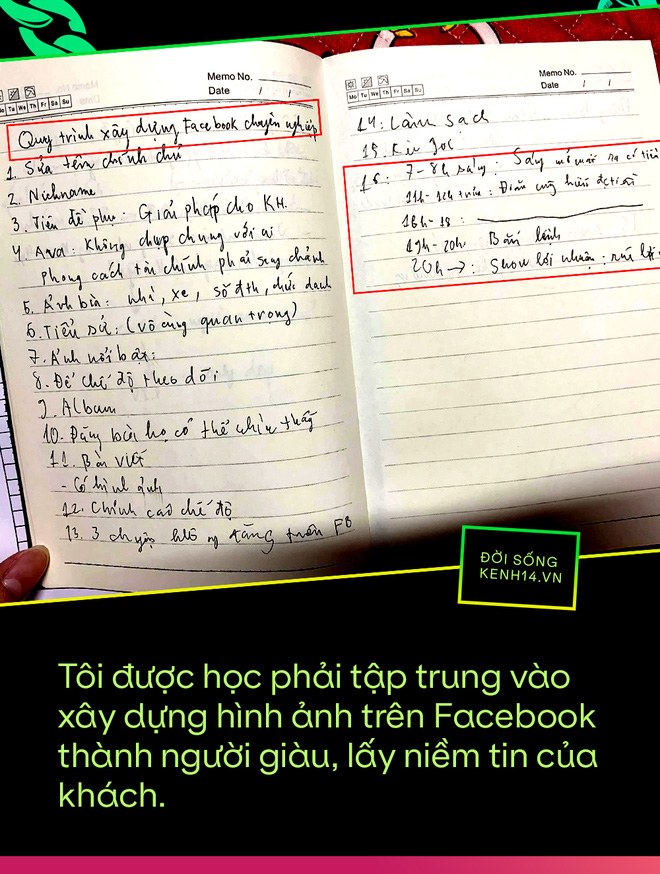 Memo No.
Date / /
Mo Tu We Th Fr Sa Su
Quy trình xây dựng Facebook chuyên nghiệp
1. Sửa tên chính chủ
2. Nickname
3. Tiền đề phụ: Giải pháp cho KH.
4. Ava: Không chụp chung với ai
phong cách tài chính phải sang chảnh
5. Ảnh bìa: nhà, xe, số đth, chức danh
6. Tiểu sử: (vô cùng quan trọng)
7. Ảnh nổi bật:
8. Để chế độ theo dõi
9. Album
10. Đăng bài họ có thể nhìn thấy
11. Bài viết
- Có hình ảnh
12. Chỉnh cao chế độ
13. 3 chuyện đăng trên FB
Memo No.
Date / /
Mo Tu We Th Fr Sa Su
14: Làm sạch
15.
16: 7-8h sáng: Sáng mở mắt ra có tiền
11h-12h trưa:
16h-18:
19h-20h: Bán
20h →: Show lợi nhuận:
ĐỜI SỐNG
KENH14.VN
Tôi được học phải tập trung vào
xây dựng hình ảnh trên Facebook
thành người giàu, lấy niềm tin của
khách.